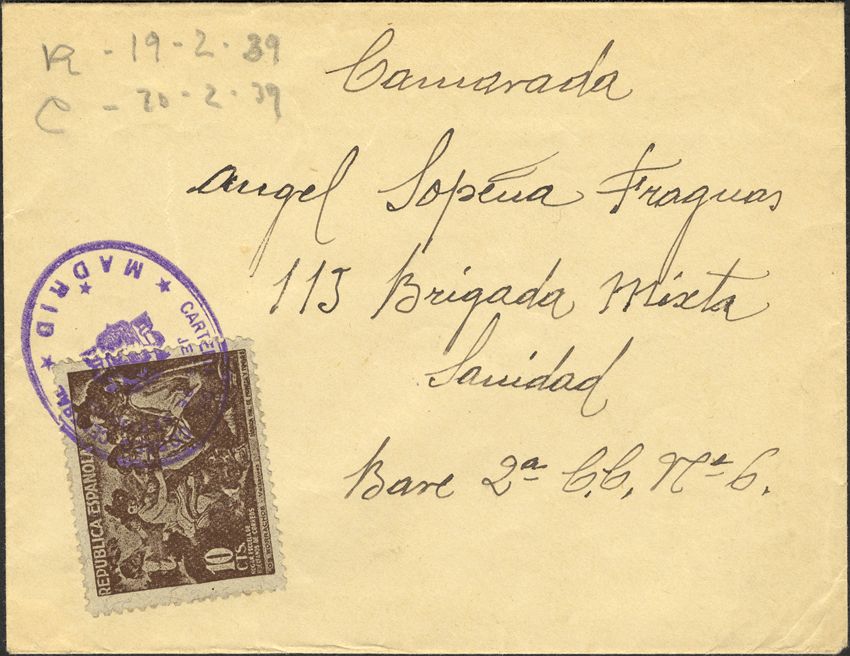 R - 19 - 2 - 39
C - 20 - 2 - 39
Camarada
Angel Sopeña Fraguas
113 Brigada Mixta
Sanidad
Base 2ª C.C. Nº 6.
MADRID
REPUBLICA ESPAÑOLA
10
CTS.